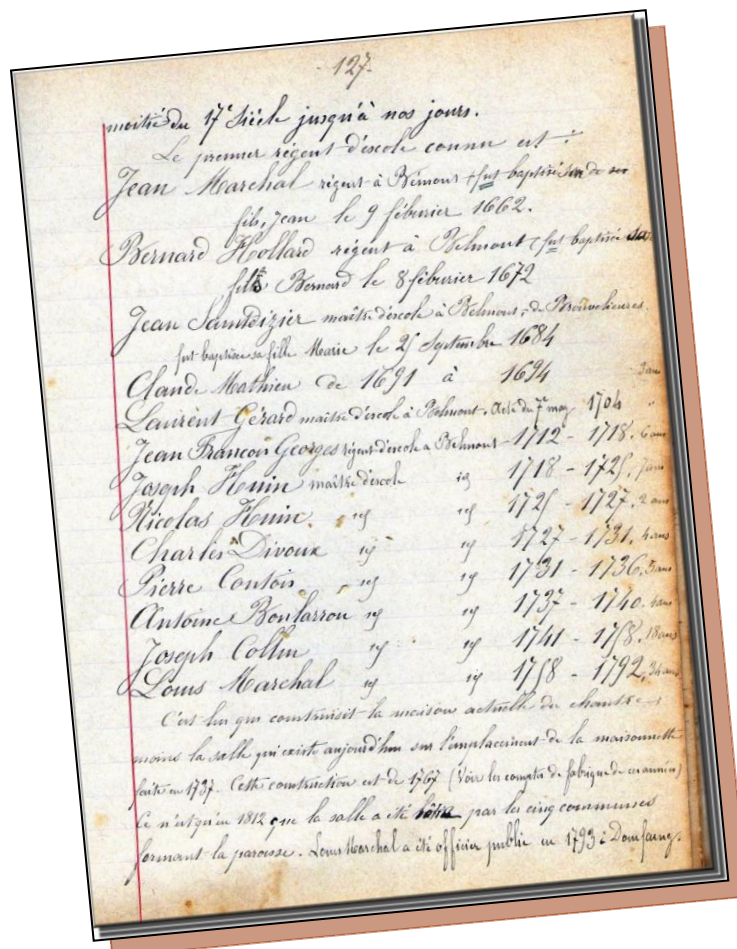 127.
moitié du 17e Siècle jusqu'à nos jours.
Le premier régent d'école connu est :
Jean Marchal régent à Bémont, fut baptisé de ses
fils, Jean le 9 février 1662.
Bernard Hollard régent à Belmont, fut baptisé
fils Bernard le 8 février 1672
Jean Saintdizier maître d'école à Belmont, de
fut baptisée sa fille Marie le 25 Septembre 1684
Claude Mathieu de 1691 à 1694 3 ans
Laurent Gérard maître d'école à Belmont. Acte du 7e may 1704 "
Jean François Georges régent d'école à Belmont - 1712 - 1718. 6 ans
Joseph Henin maître d'école id 1718 - 1725. 7 ans
Nicolas Henin. id id 1725 - 1727. 2 ans
Charles Divoux id id 1727 - 1731. 4 ans
Pierre Contois id id 1731 - 1736. 5 ans
Antoine Bontarron id id 1737 - 1740. ans
Joseph Collin id id 1741 - 1758. 18 ans
Louis Marchal id id 1758 - 1792. 34 ans
C'est lui qui construisit la maison actuelle du chantre
moins la salle qui existe aujourd'hui sur l'emplacement de la maisonnette
faite en 1737. Cette construction est de 1767 (Voir les comptes de fabrique de ces années)
Ce n'est qu'en 1812 que la salle a été bâtie par les cinq communes
formant la paroisse. Louis Marchal a été officier public en 1793 à Domfaing.